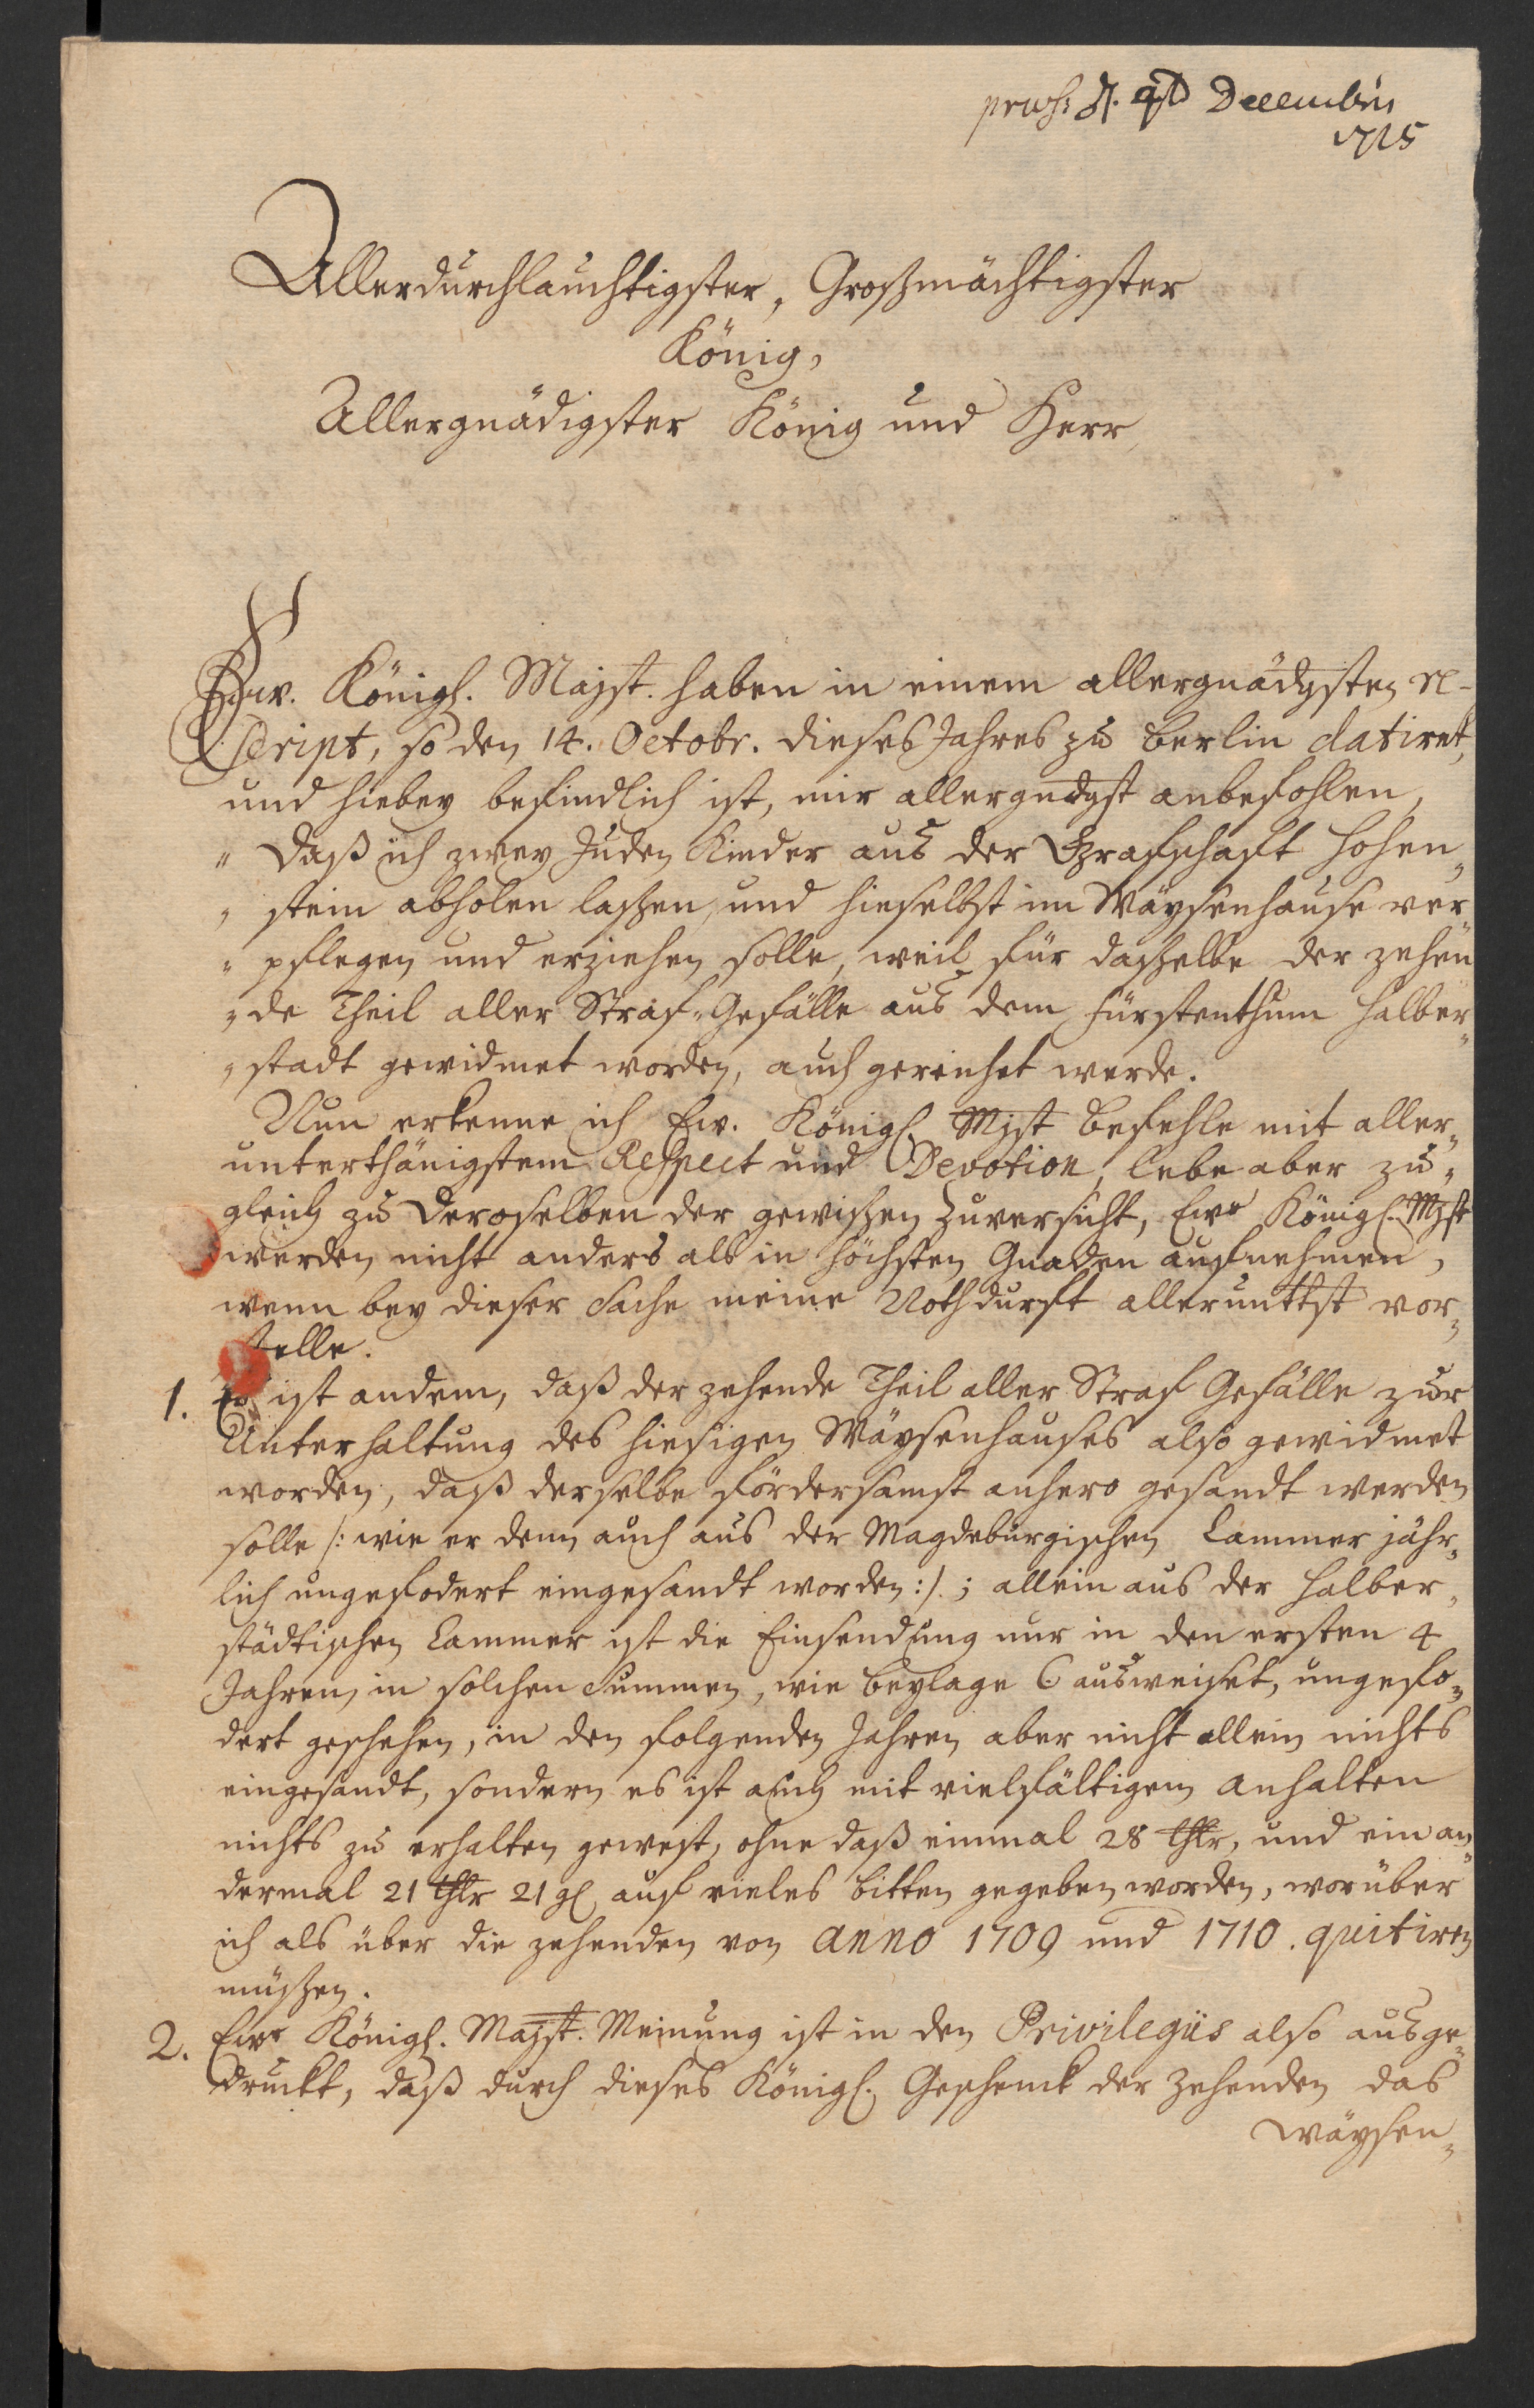 Decembris
1715
Allerdurchlauchtigster, Großmächtigster
König,
Allergnädigster König und Herr
Ew. Königl. Majst. haben in einem allergnädgsten re-
script, so den 14. Octobr. dieses Jahres zu Berlin datiret,
und hiebey befindlich ist, mir allergndgst anbefohlen,
" Daß ich zwey Juden Kinder aus der Grafschafft Hohen„
„ stein abholen laßen, und hieselbst im Wäysenhause ver„
„ pflegen und erziehen solle, weil für daßelbe der zehen„
„ de Theil aller Straf-Gefälle aus dem Fürstenthum Halber„
„ stadt gewidmet worden, auch gereichet werde.
Nun erkenne ich Ew. Königl. Mjst Befehle mit aller„
unterthänigstem Respect und Devotion, lebe aber zu„
gleich zu Deroselben der gewißen Zuversicht, Ewr Königl. Mjst
werden nicht anders als in höchsten Gnaden aufnehmen,
wenn bey dieser Sache meine Nothdurfft allerunttst vor„
stelle.
1. Es ist andem, daß der zehende Theil aller Straf Gefälle zur
Unterhaltung des hiesigen Wäysenhauses also gewidmet
worden, daß derselbe fördersamst anhero gesandt werden
solle /: wie er denn auch aus der Magdeburgischen Cammer jähr„
lich ungefodert eingesandt worden :/. ; allein aus der Halber„
städtischen Cammer ist die Einsendung nur in den ersten 4
Jahren, in solchen Summen, wie Beylage C ausweiset, ungefo„
dert geschehen, in den folgenden Jahren aber nicht allein nichts
eingesandt, sondern es ist auch mit vielfältigem anhalten
nichts zu erhalten gewest, ohne daß einmal 28 thlr, und ein an„
dermal 21 thlr 21 gl auf vieles bitten gegeben worden, worüber
ich als über die zehenden von anno 1709 und 1710. quitiren
müßen.
2. Ewr Königl. Majst. Meinung ist in den Privilegiis also ausge„
druckt, daß durch dieses Königl. Geschenck der Zehenden das
Wäysen„